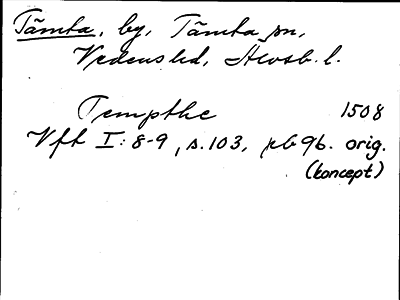 Tämta, by, Tämta sn,
Vedens hd, Älvsb. l.
Tempthe 1508
Vft I: 8-9, s. 103, pb 96. orig.
(koncept)